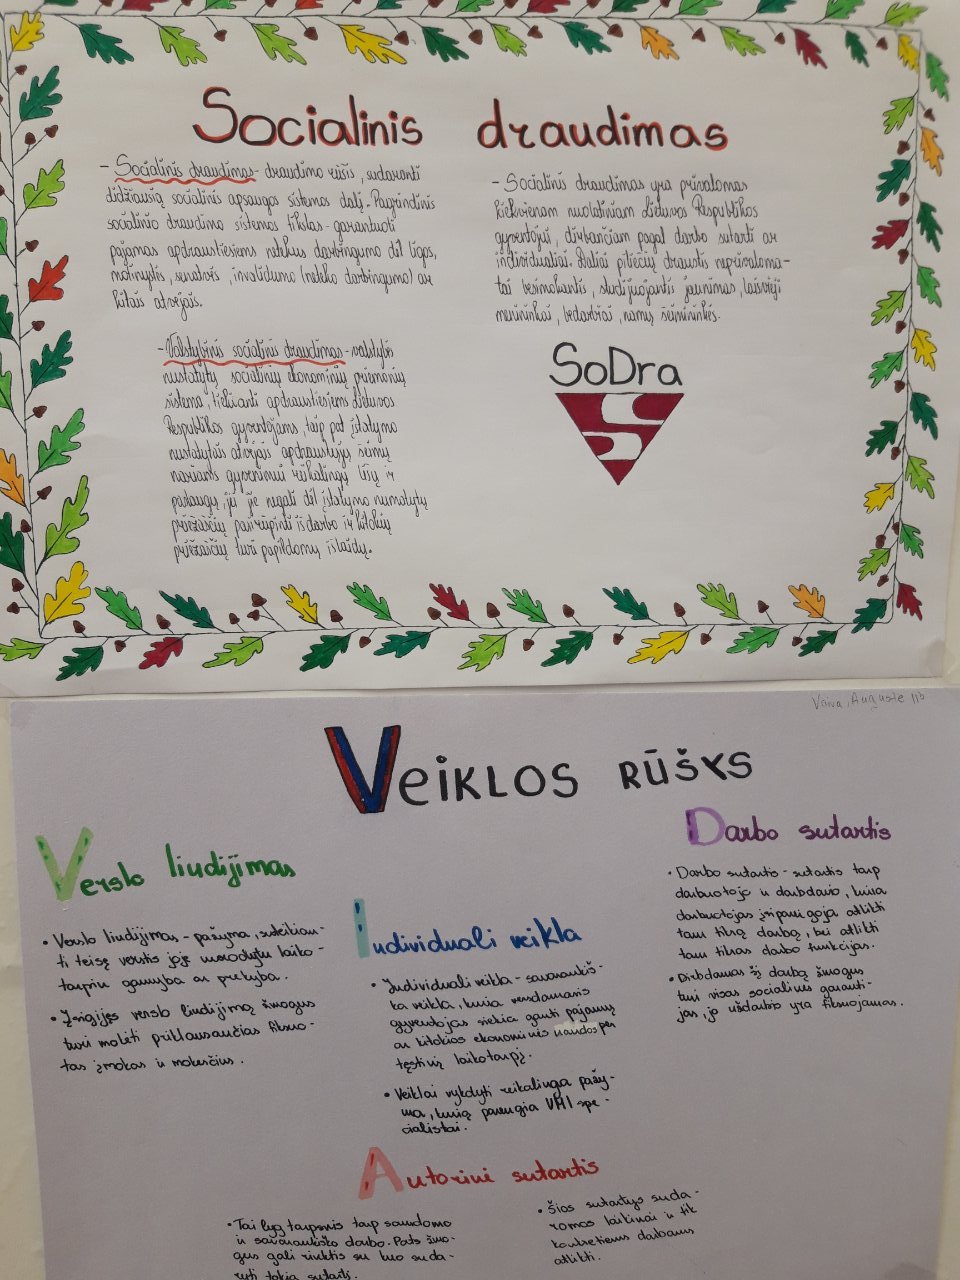 Socialinis draudimas
- Socialinis draudimas - draudimo rūšis, sudaranti
didžiausią socialinės apsaugos sistemos dalį. Pagrindinis
socialinio draudimo sistemos tikslas - garantuoti
pajamas apdraustiesiems netekus darbingumo dėl ligos,
motinystės, senatvės, invalidumo (netekto darbingumo) ar
kitais atvejais.
- Valstybinis socialinis draudimas - valstybės
nustatytų socialinių ekonominių priemonių
sistema, teikianti apdraustiesiems Lietuvos
Respublikos gyventojams, taip pat įstatymo
nustatytais atvejais apdraustųjų šeimų
nariams gyvenimui reikalingų lėšų ir
paslaugų, jei jie negali dėl įstatymo numatytų
priežasčių pasirūpinti iš darbo ir kitokių
priežasčių turi papildomų išlaidų.
- Socialinis draudimas yra privalomas
kiekvienam nuolatiniam Lietuvos Respublikos
gyventojui, dirbančiam pagal darbo sutartį ar
individualiai. Daliai piliečių draustis neprivaloma-
tai besimokantis, studijuojantis jaunimas, laisvieji
menininkai, bedarbiai, namų šeimininkės.
SoDra
Vaiva, Augustė IIb
Veiklos rūšys
Verslo liudijimas
• Verslo liudijimas - pažyma, suteikian-
ti teisę verstis joje nurodytu laiko-
tarpiu gamyba ar prekyba.
• Įsigijęs verslo liudijimą žmogus
turi mokėti priklausančias fiksuo-
tas įmokas ir mokesčius.
Individuali veikla
• Individuali veikla - savarankiš-
ka veikla, kuria versdamasis
gyventojas siekia gauti pajamų
ar kitokios ekonominės naudos per
tęstinį laikotarpį.
• Veiklai vykdyti reikalinga pažy-
ma, kurią parengia VMI spe-
cialistai.
Darbo sutartis
• Darbo sutartis - sutartis tarp
darbuotojo ir darbdavio, kuria
darbuotojas įsipareigoja atlikti
tam tikrą darbą, bei atlikti
tam tikras darbo funkcijas.
• Dirbdamas šį darbą žmogus
turi visas socialines garanti-
jas, jo uždarbis yra fiksuojamas.
Autorinė sutartis
• Tai lyg tarpinis tarp samdomo
ir savarankiško darbo. Pats žmo-
gus gali rinktis su kuo suda-
ryti tokią sutartį.
• Šios sutartys suda-
romos laikinai ir tik
konkretiems darbams
atlikti.